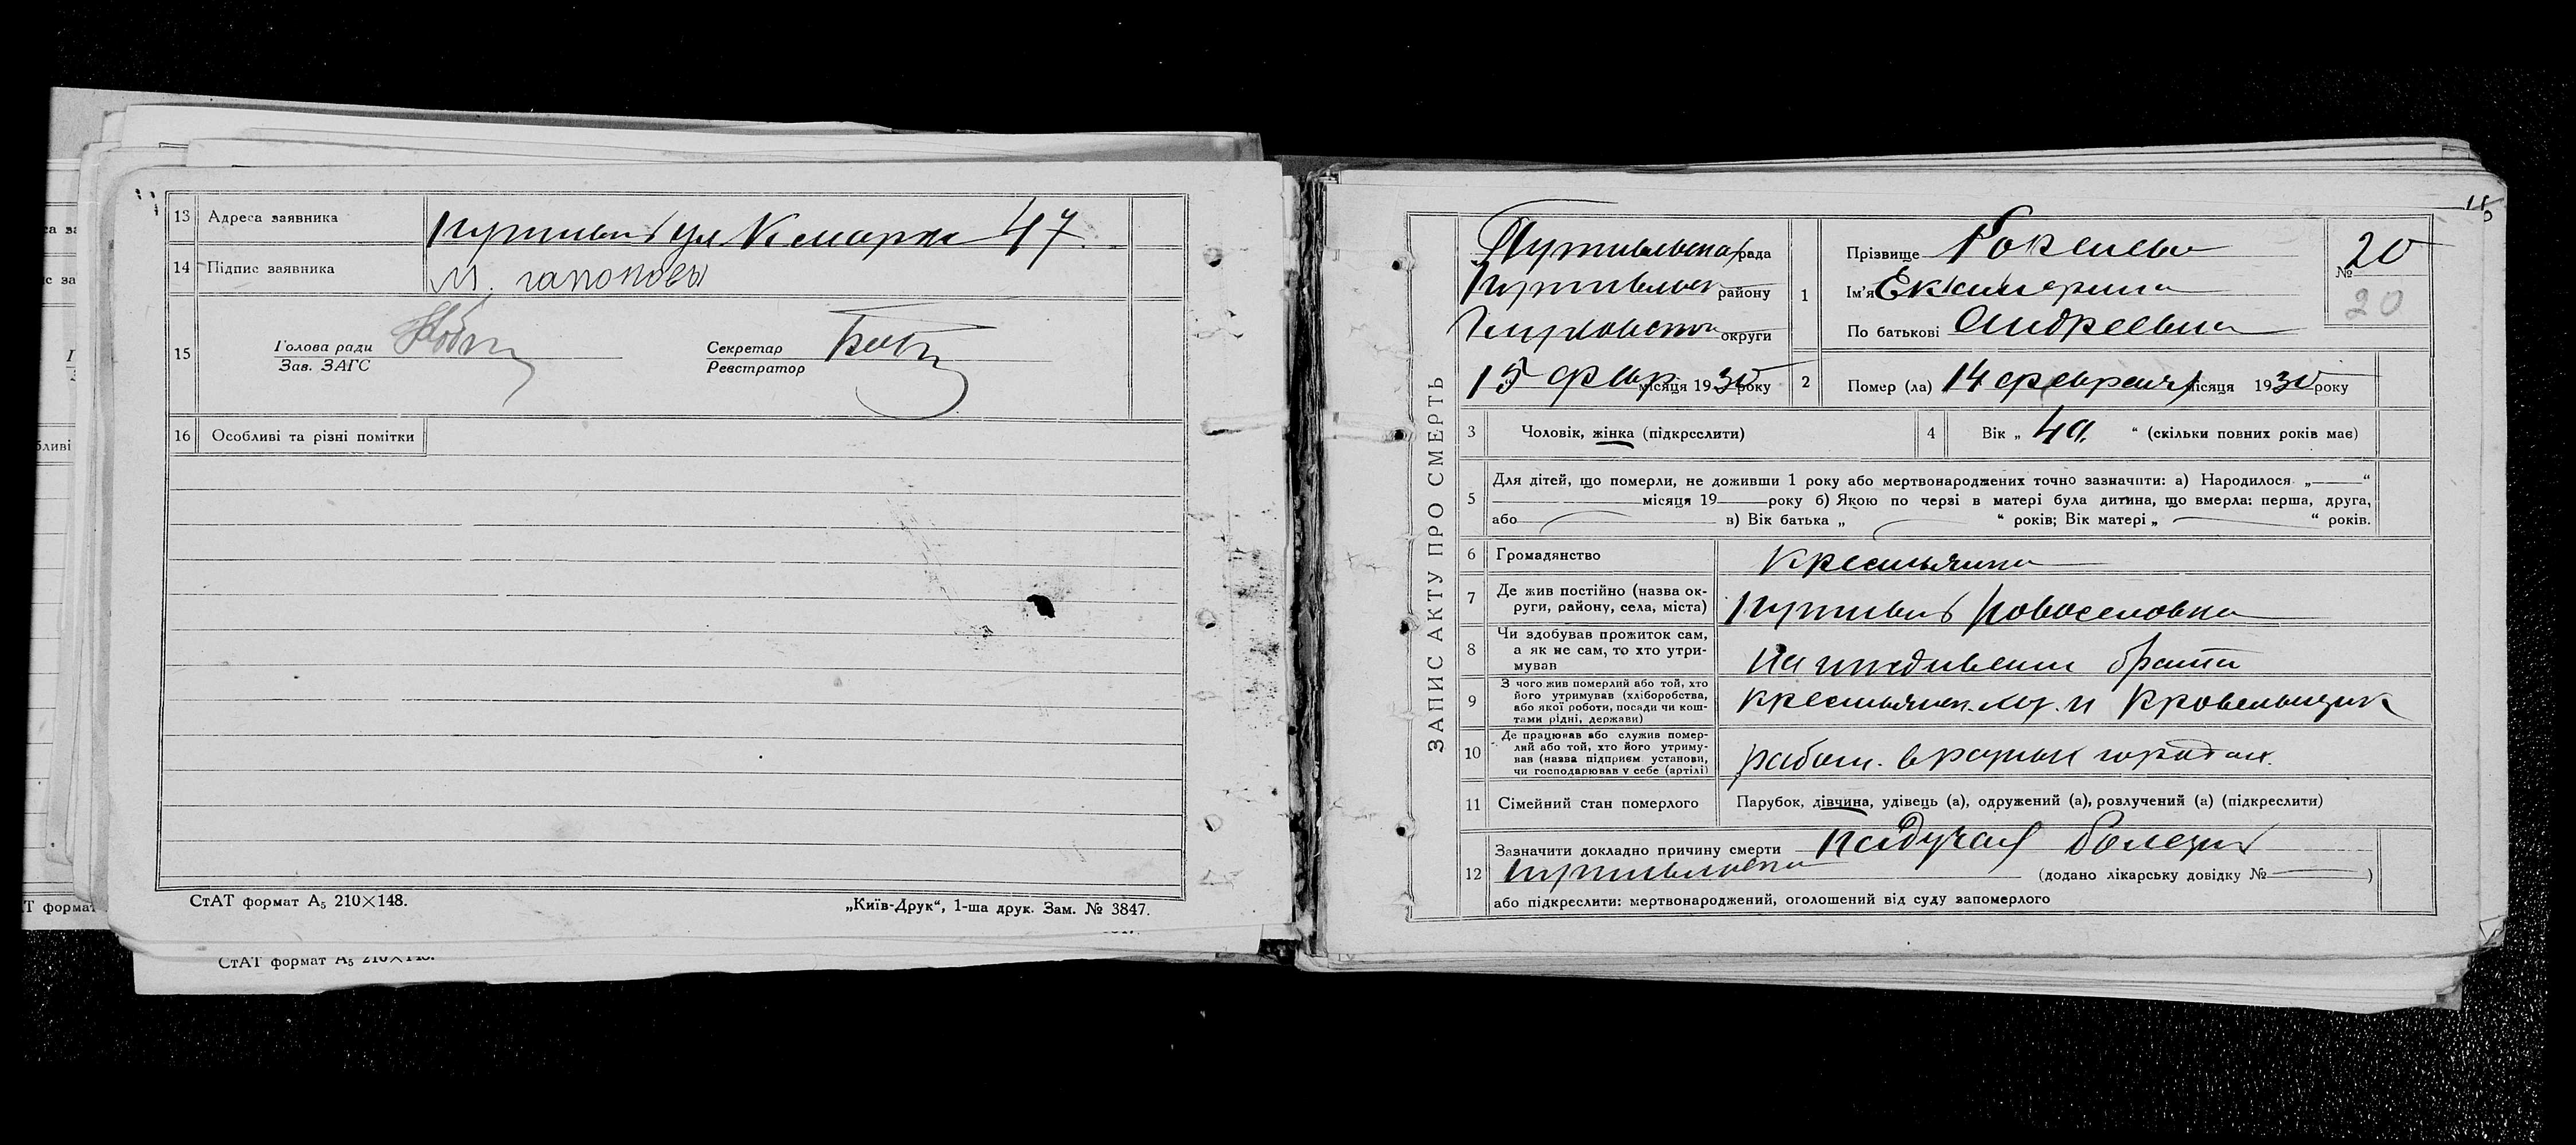 13 Адреса заявника Путивль ул К маркса 47
14 Підпис заявника М. гапонова
15 Голова ради
Зав. ЗАГС
Секретар
Реєстратор
16 Особливі та різні помітки
СтАТ формат А5 210×148.
„Київ-Друк“, 1-ша друк. Зам. № 3847.
СтАТ формат А5 210×148.
15
ЗАПИС АКТУ ПРО СМЕРТЬ
Путивльська рада
Путивльск району
округи
15 февр місяця 1930 року
1 Прізвище
Ім'я Екатерина
По батькові Андреевна
№ 20
20
2 Помер (ла) 14 февраля місяця 1930 року
3 Чоловік, жінка (підкреслити)
4 Вік „ “ (скільки повних років має)
5 Для дітей, що померли, не доживши 1 року або мертвонароджених точно зазначити: а) Народилося „ “
місяця 19 року б) Якою по черзі в матері була дитина, що вмерла: перша, друга,
або в) Вік батька „ “ років; Вік матері „ “ років.
6 Громадянство крестьянка
7 Де жив постійно (назва ок-
руги, району, села, міста) Путивль Новоселовка
8 Чи здобував прожиток сам,
а як не сам, то хто утри-
мував на иждивении брата
9 З чого жив померлий або той, хто
його утримував (хліборобства,
або якої роботи, посади чи кош-
тами рідні, держави) крестьянск. и кровельщик
10 Де працював або служив помер-
лий або той, хто його утриму-
вав (назва підприєм. установи,
чи господарював у себе (артілі) работ. в разных городах.
11 Сімейний стан померлого Парубок, дівчина, удівець (а), одружений (а), розлучений (а) (підкреслити)
12 Зазначити докладно причину смерти падучая болезнь
(додано лікарську довідку № )
або підкреслити: мертвонароджений, оголошений від суду запомерлого